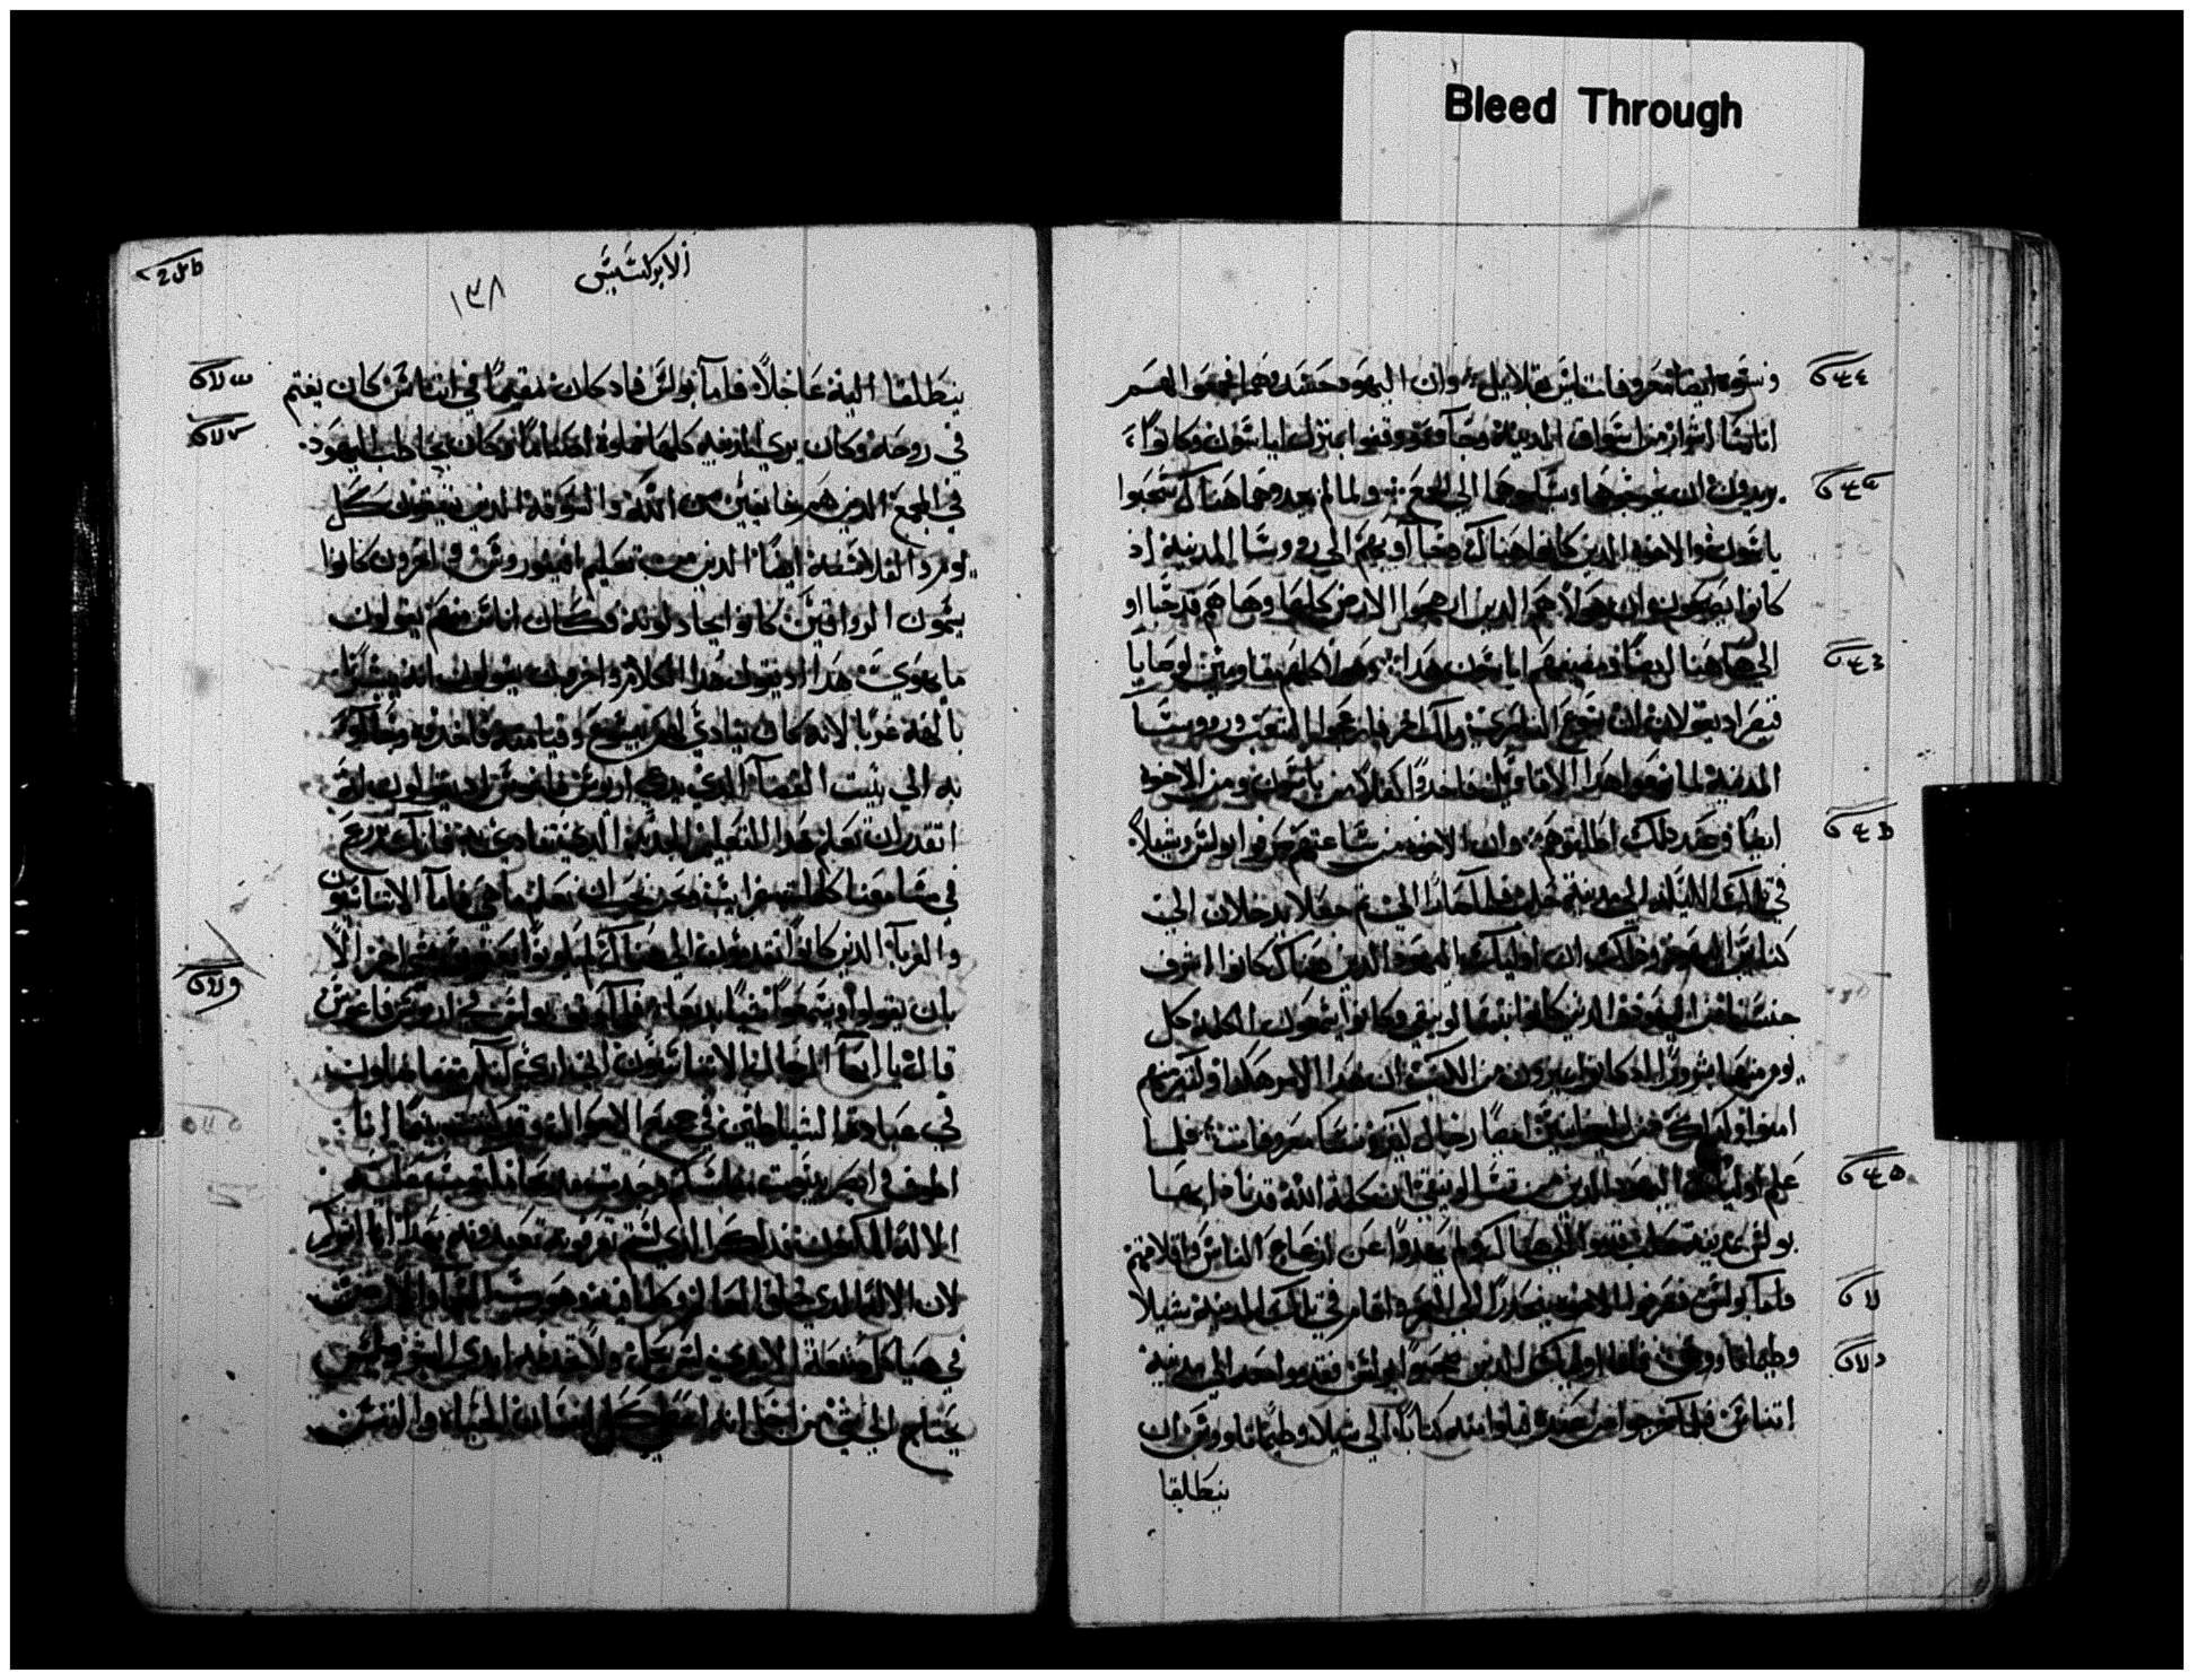 Bleed Through
ونسوة ايضا معروفات ليس بقلايل وان اليهود حسدوهما فجمعوا لهم
اناسا اشرار من اسواق المدينة وجآوو ووقفوا بمنزل اياسون وكانوا
يريدون ان يخرجوهما ويسلموهما الي الجمع ولما لم يجدوهما هناك سحبوا
ياسون والاخوة الذين كانوا هناك وجآوو بهم الي رووسا المدينة اذ
كانوا يصيحون وان هولاء هم الذين ارهجوا الارض كلها وها هم قد جآاو
الي هاهنا ايضا ومضيفهم اياسون هذا وهولاء كلهم مقاومين لوصايا
قيصر اذ يقولان ان يسوع الناصري ملك اخر فارتجوا الشعب وروسا
المدينة لما سمعوا هذا الاقاويل فاخدوا كفلا من ياسون ومن الاخوة
ايضا وعند ذلك اطلقوهم وان الاخوة من ساعتهم صرفوا بولس وشيلا
في تلك الليلة الي مدينة حلب فلما جآاا الي ثم جعلا يدخلان الي
كنايس اليهود وذلك ان اوليك اليهود الذين هناك كانوا اشرف
جنسا من اليهود الذين كانوا بتسالونيقي وكانوا يسمعون الكلمة كل
يوم منهما بسرور اذ كانوا يميزون من الكتب ان هذا الامر هكذا وكثير منهم
امنوا وكذلك من اليونانيين ايضا رجال كثيرة ونسا معروفات فلما
علم اوليك اليهود الذين من تسالونيقي ان كلمة الله قد نادا بها
بولس بمدينة حلب قدموا الي هناك ولم يهدوا عن ازعاج الناس واقلاقهم
فاما بولس فصرفوا الاخوة ينحدر الي البحر واقام في تلك المدينة شيلا
وطيماتاووس فاما اوليك الذين صحبوا بولس فقدموا معه الي مدينة
اتناس فلما خرجوا من عنده قبلوا منه كتابا الي شيلا وطيماتاووس ان
ينطلقا
الابركسيس
١٣٨
ينطلقا اليه عاجلا فاما بولس فاد كان مقيما في اتناس كان يغتم
في روحه وكان يري المدينة كلها مملوة اصناما وكان يخاطب اليهود
في المجمع الذين هم خايفين من الله والسوقة الذين يتفقون كل
يوم والفلاسفة ايضا الذين من تعليم افيقوروس واخرون كانوا
يسمون الرواقيين كانوا يجادلونه وكان اناس منهم يقولون
ما يهوي هذا اد يقول هذا الكلام واخرون يقولون انه يبشرنا
بآلهة غربا لانه كان ينادي لهم بيسوع وقيامته فاخدوه وجآوو
به الي بيت القضآ الذي يدعي اريوس فاغوس اد يقولون له
اتقدر ان نعلم هذا التعليم الجديد الذي تنادي به فانك تزرع
في مسامعنا كلمات غرايب ونحن نحب ان نعلم ما هي فاما الاتناسيون
والغربآ الذين كانوا يقدمون الي هناك فلم يكونوا يعنون بشي اخر الا
بان يقولوا ويسمعوا شيا بديعا فلما وقف بولس في اريوس فاغوس
قال يا ايها الرجال الاتناسيون اني اري انكم متفاضلون
في عبادة الشياطين في جميع الاحوال وقد كنت بينما انا
اطوف وابصر بيوت نسككم وجدت مذبحا مكتوبا عليه
الاله المكنون فذلك الذي لستم تعرفونه وتعبدونه بهذا انا ابشركم
لان الاله الذي خلق العالم وكلما فيه وهو رب السما والارض
في هياكل صنعة الايدي ليس يحل ولا تخدمه ايدي البشر وليس
يحتاج الي شي من اجل انه اعطا كل انسان الحياة والنفس